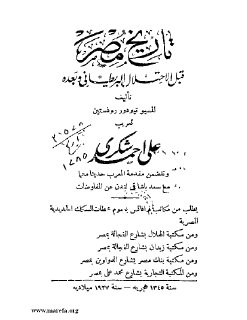 تاريخ مصر
قبل الاحتلال البريطاني وبعده
تأليف
المسيو تيودور روذستين
تعريب
علي أحمد شكري
وتتضمن مقدمة المعرب حديثا مهما
مع سعد باشا في لندن عن المفاوضات
يطلب من مكاتب أبو الفتوح بعموم محطات السكك الحديدية
المصرية
ومن مكتبة الهلال بشارع الفجالة بمصر
ومن مكتبة زيدان بشارع الفجالة بمصر
ومن مكتبة بنك مصر بشارع الدواوين بمصر
ومن المكتبة التجارية بشارع محمد علي بمصر
سنة ١٣٤٥ هجرية — سنة ١٩٢٧ ميلادية
www.marefa.org